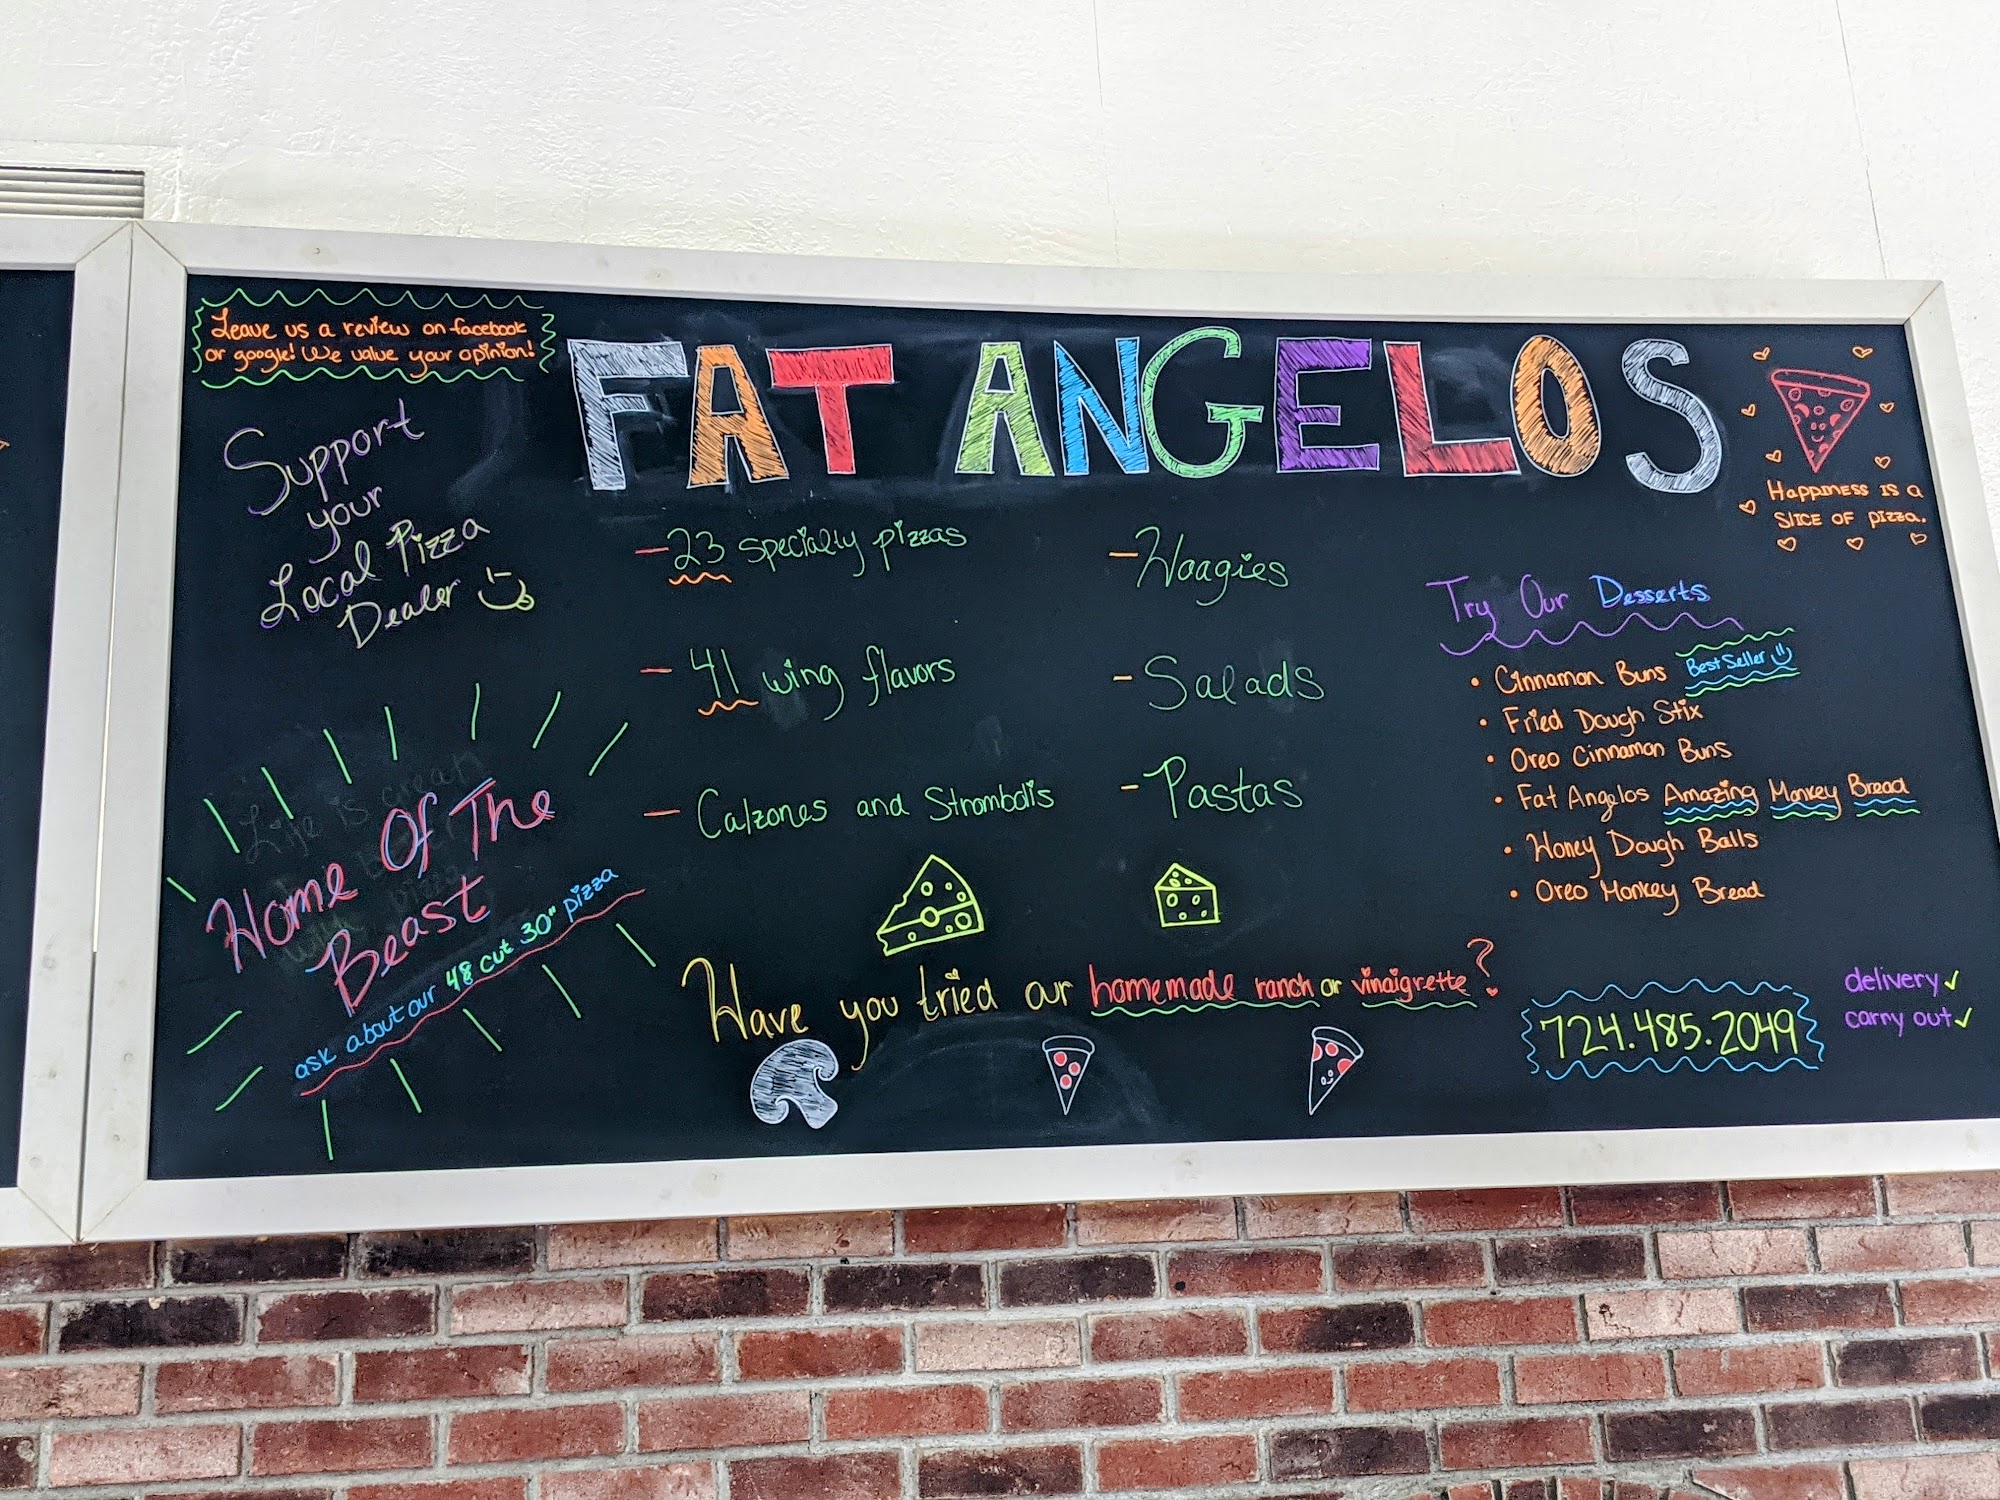 Leave us a review on facebook
or google! We value your opinion!
FAT ANGELOS
Support
your
Local Pizza
Dealer
Happiness is a
slice of pizza.
- 23 specialty pizzas
- 41 wing flavors
- Calzones and Strombolis
- Hoagies
- Salads
- Pastas
Try Our Desserts
• Cinnamon Buns Best Seller
• Fried Dough Stix
• Oreo Cinnamon Buns
• Fat Angelos Amazing Monkey Bread
• Honey Dough Balls
• Oreo Monkey Bread
Home Of The
Beast
ask about our 48 cut 30" pizza
Have you tried our homemade ranch or vinaigrette?
724.485.2049
delivery ✓
carry out ✓